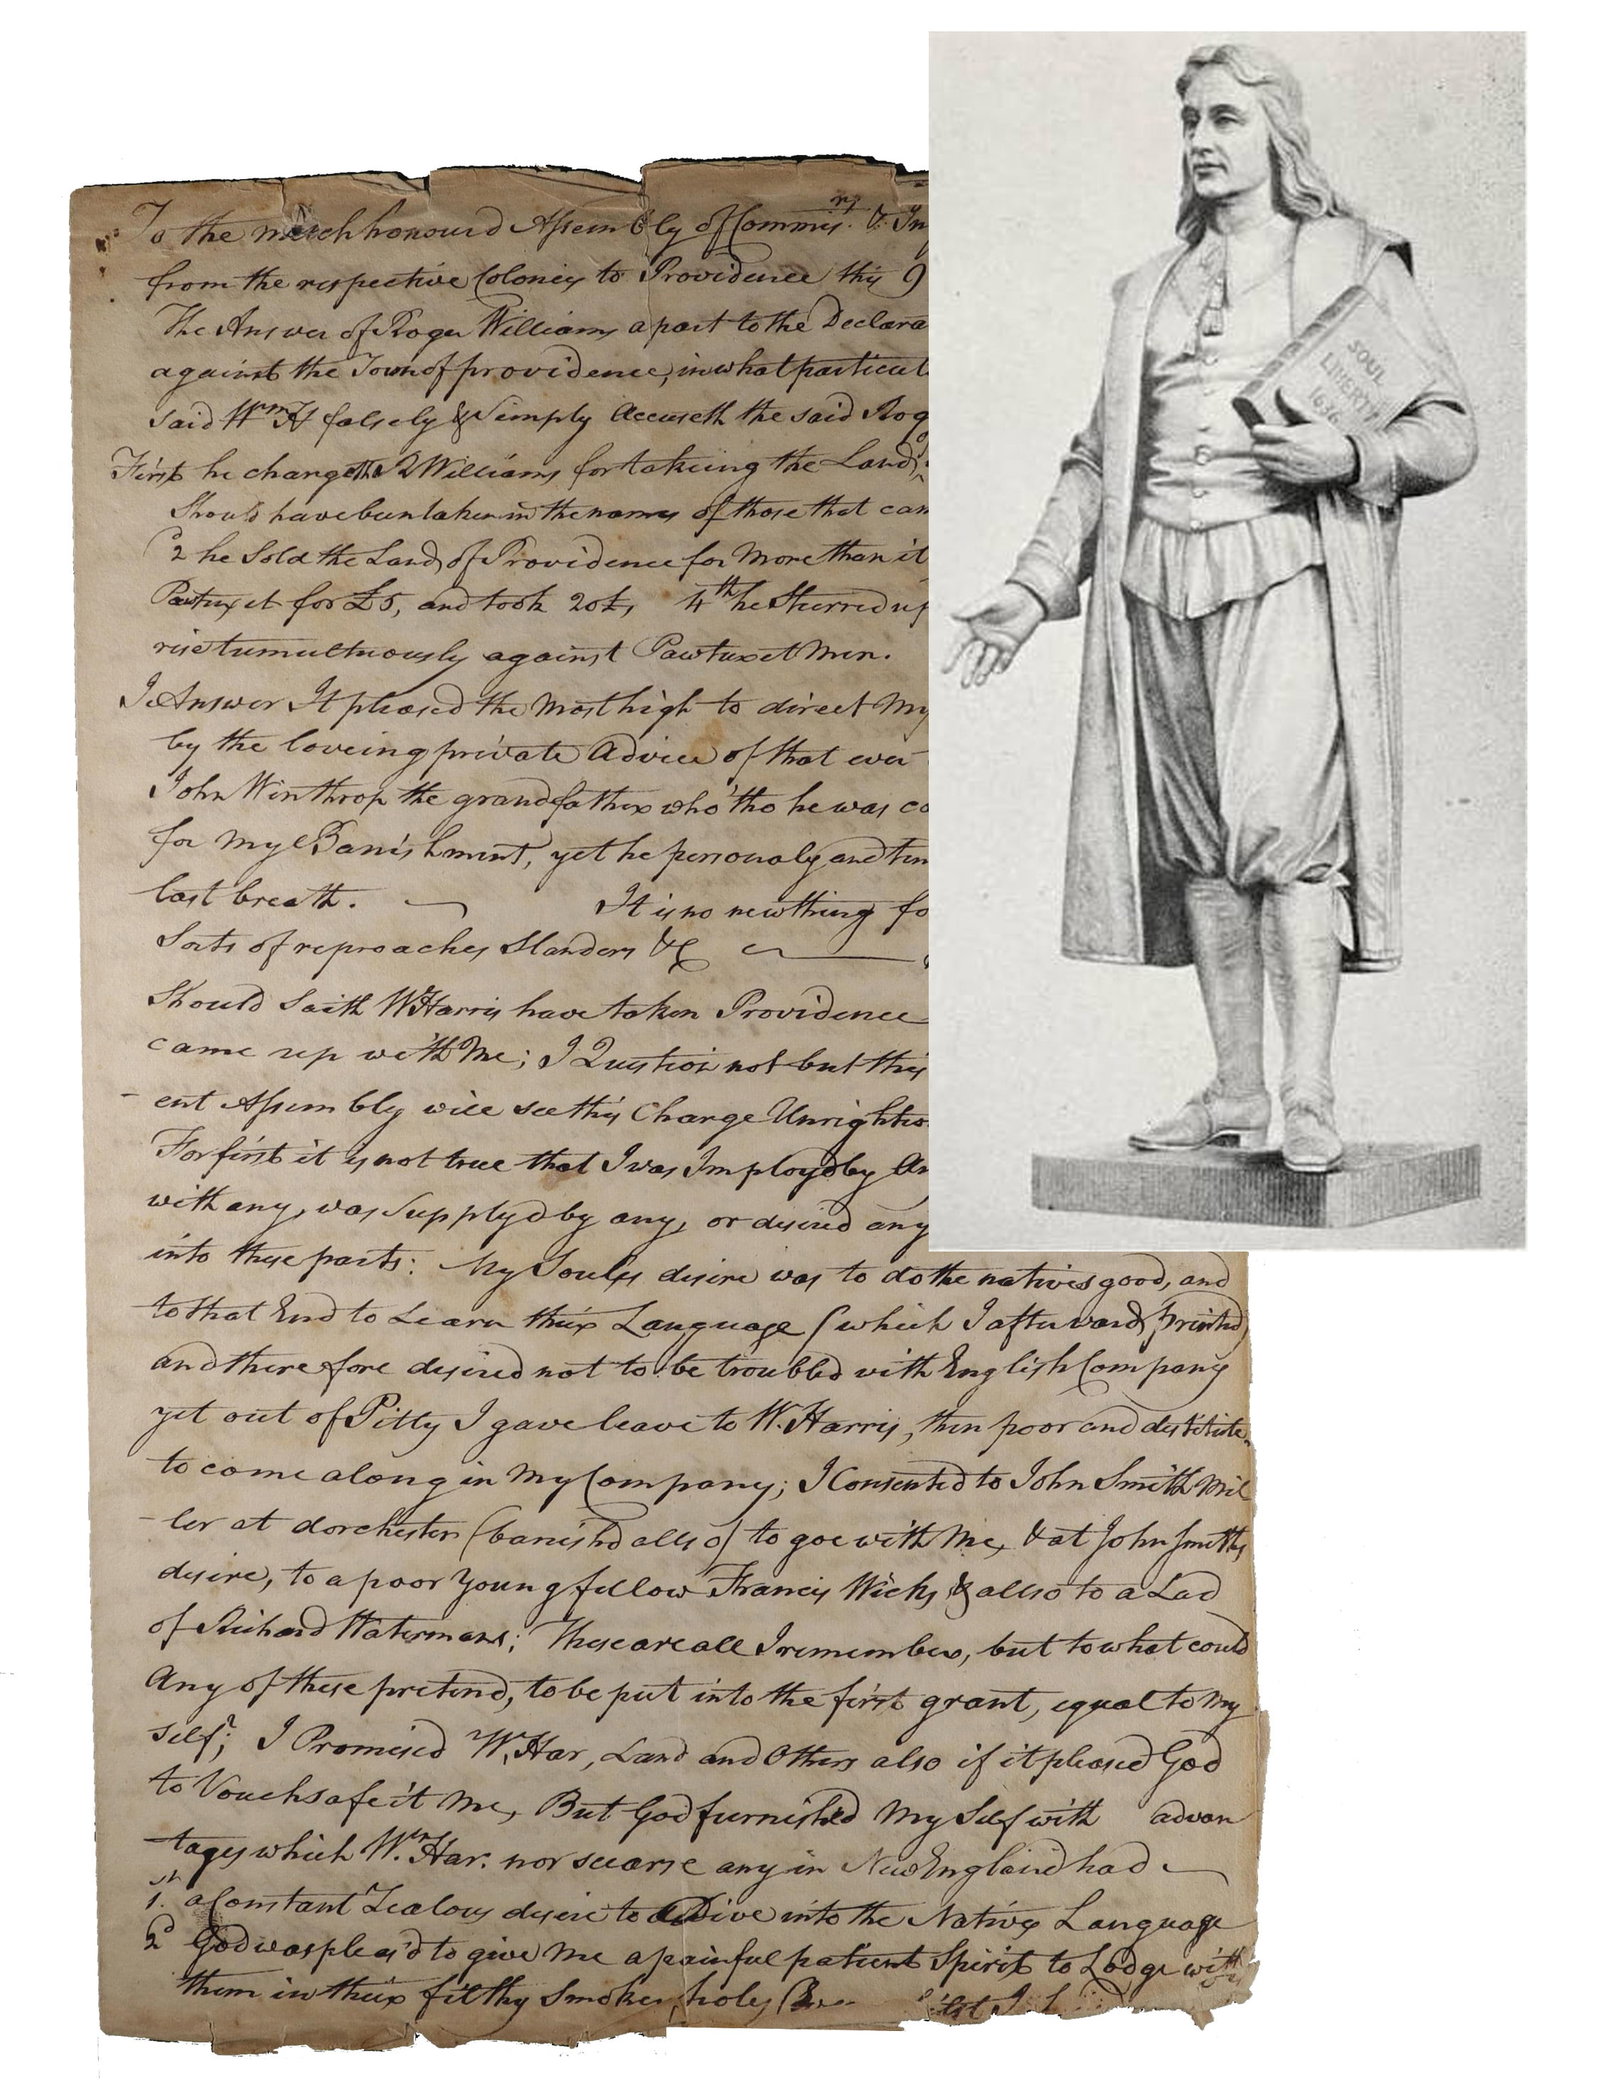 To the much honourd Assembly of Commis.rs &
from the respective Colonies to Providence this
The Answer of Roger Williams apart to the Declara
against the Town of providence, in what particul
said Wm H falsely & Simply Accuseth the said Rog
First he chargeth R Williams for takeing the Land,
Should have been taken in the names of those that cam
2 he Sold the Land of Providence for More than it
Pawtuxet for £5, and took 20£, 4th he Sturred up
rise tumultuously against Pawtuxet Men.
I Answer It pleased the Most high to direct My
by the loveing private Advice of that ever
John Winthrop the grandfather who tho he was co
for My Banishment, yet he personaly and ten
last breath. It is no new thing fo
Sorts of reproaches Slanders &c
Should Saith W Harris have taken Providence
came up with Me; I Question not but this
ent Assembly will see this Charge Unrighteo
For first it is not true that I was Imployd by An
with any, was Supplyd by any, or desired any
into these parts: My Souls desire was to do the natives good, and
to that End to Learn their Language (which I afterwards printed)
and therefore desired not to be troubled with English Company
yet out of Pitty I gave leave to W. Harris, then poor and destitute
to come along in My Company; I Consented to John Smith Mil
-ler at dorchester (banishd allso) to goe with Me, & at John Smiths
desire, to a poor Young fellow Francis Wicks & allso to a Lad
of Richard Watermans; These are all I remember, but to what could
Any of these pretend, to be put into the first grant, equal to My
self; I Promised W. Har, Land and Others also if it pleased God
to Vouchsafe it Me, But God furnished My Self with advan
tages which Wm. Har. nor scarse any in New England had
1st. a Constant Zealous desire to Dive into the Natives Language
2d God was pleas'd to give Me a painful patient Spirit to Lodge with
them in their filthy Smokey holes
SOUL
LIBERTY
1636